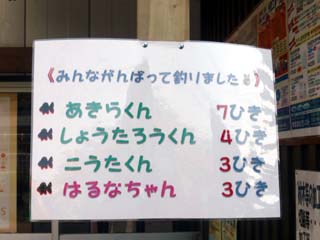 《みんながんばって釣りました✌》
あきらくん 7ひき
しょうたろうくん 4ひき
こうたくん 3ひき
はるなちゃん 3ひき